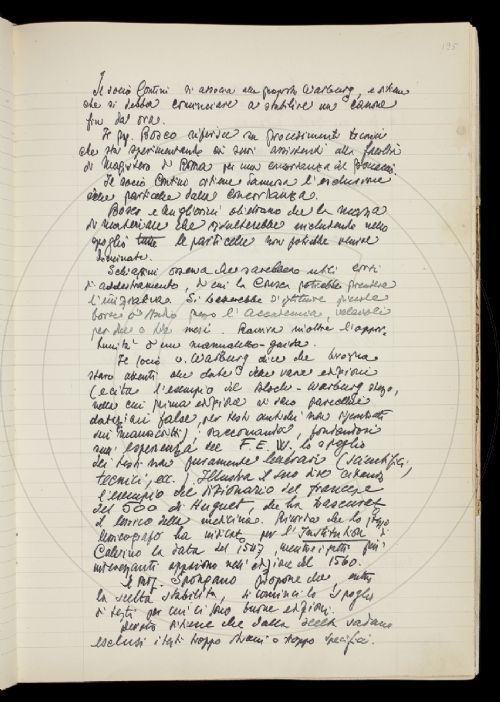 195
Il socio Contini si associa alla proposta Warburg, e ritiene
che si debba cominciare a stabilire un canone
fin da ora.
Il pp. Bosco riferisce su procedimenti tecnici
che sta sperimentando coi suoi assistenti alla facoltà
di Magistero di Roma per una concordanza del
Il socio Contini ritiene dannosa l'esclusione
delle particelle dalla concordanza.
Bosco e obiettano che la mezza
di materiale che risulterebbe includendo nello
spoglio tutte le particelle non potrebbe venire
dominata.
Schiaffini osserva che sarebbero utili corsi
di addestramento, di cui la Crusca potrebbe prendere
l'iniziativa. Si potrebbe istituire piccole
borse di studio presso l'Accademia, valevoli
per due o tre mesi. Ravvisa inoltre l'oppor-
tunità d'un manualetto-guida.
Il socio v. Warburg dice che bisogna
stare attenti alle date delle varie edizioni
(e cita l'esempio del Bloch-Warburg stesso,
nella cui prima edizione vi sono parecchie
datazioni false, per testi antichi non riscontrati
sui manoscritti); raccomanda, fondandosi
sull'esperienza del F.E.W. lo spoglio
dei testi non puramente letterari (scientifici,
tecnici, ecc.). Illustra il suo dire citando
l'esempio del dizionario del francese
del 500 di Huguet, che ha trascurato
il lessico della medicina. Ricorda che lo stesso
lessicografo ha indicato per l'Institution di
Calvino la data del 1541, mentre i passi più
interessanti appaiono nell'edizione del 1560.
Il prof. Spongano propone che, entro
la scelta stabilita, si cominci lo spoglio
di testi per cui ci sono buone edizioni.
Devoto ritiene che dalla scelta vadano
esclusi i testi troppo strani o troppo specifici.